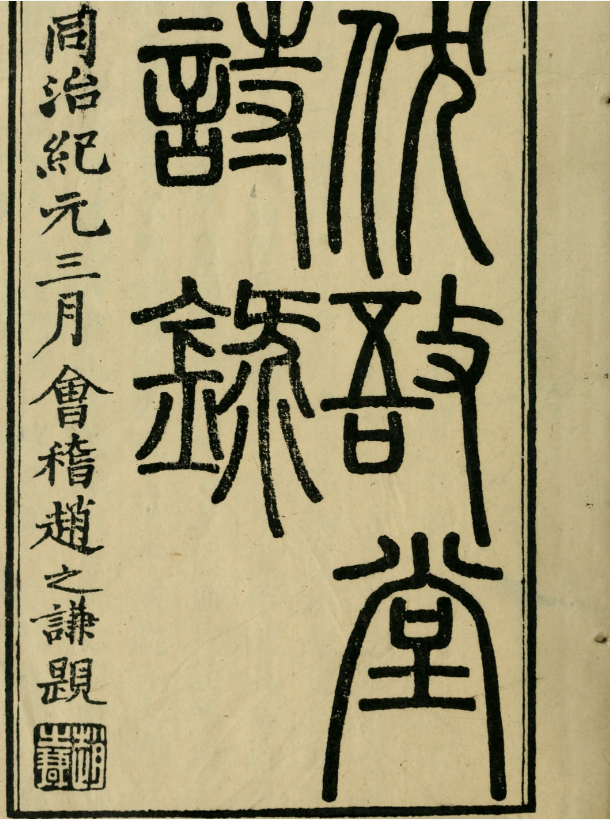 伏敔堂
詩錄
同治紀元三月會稽趙之謙題